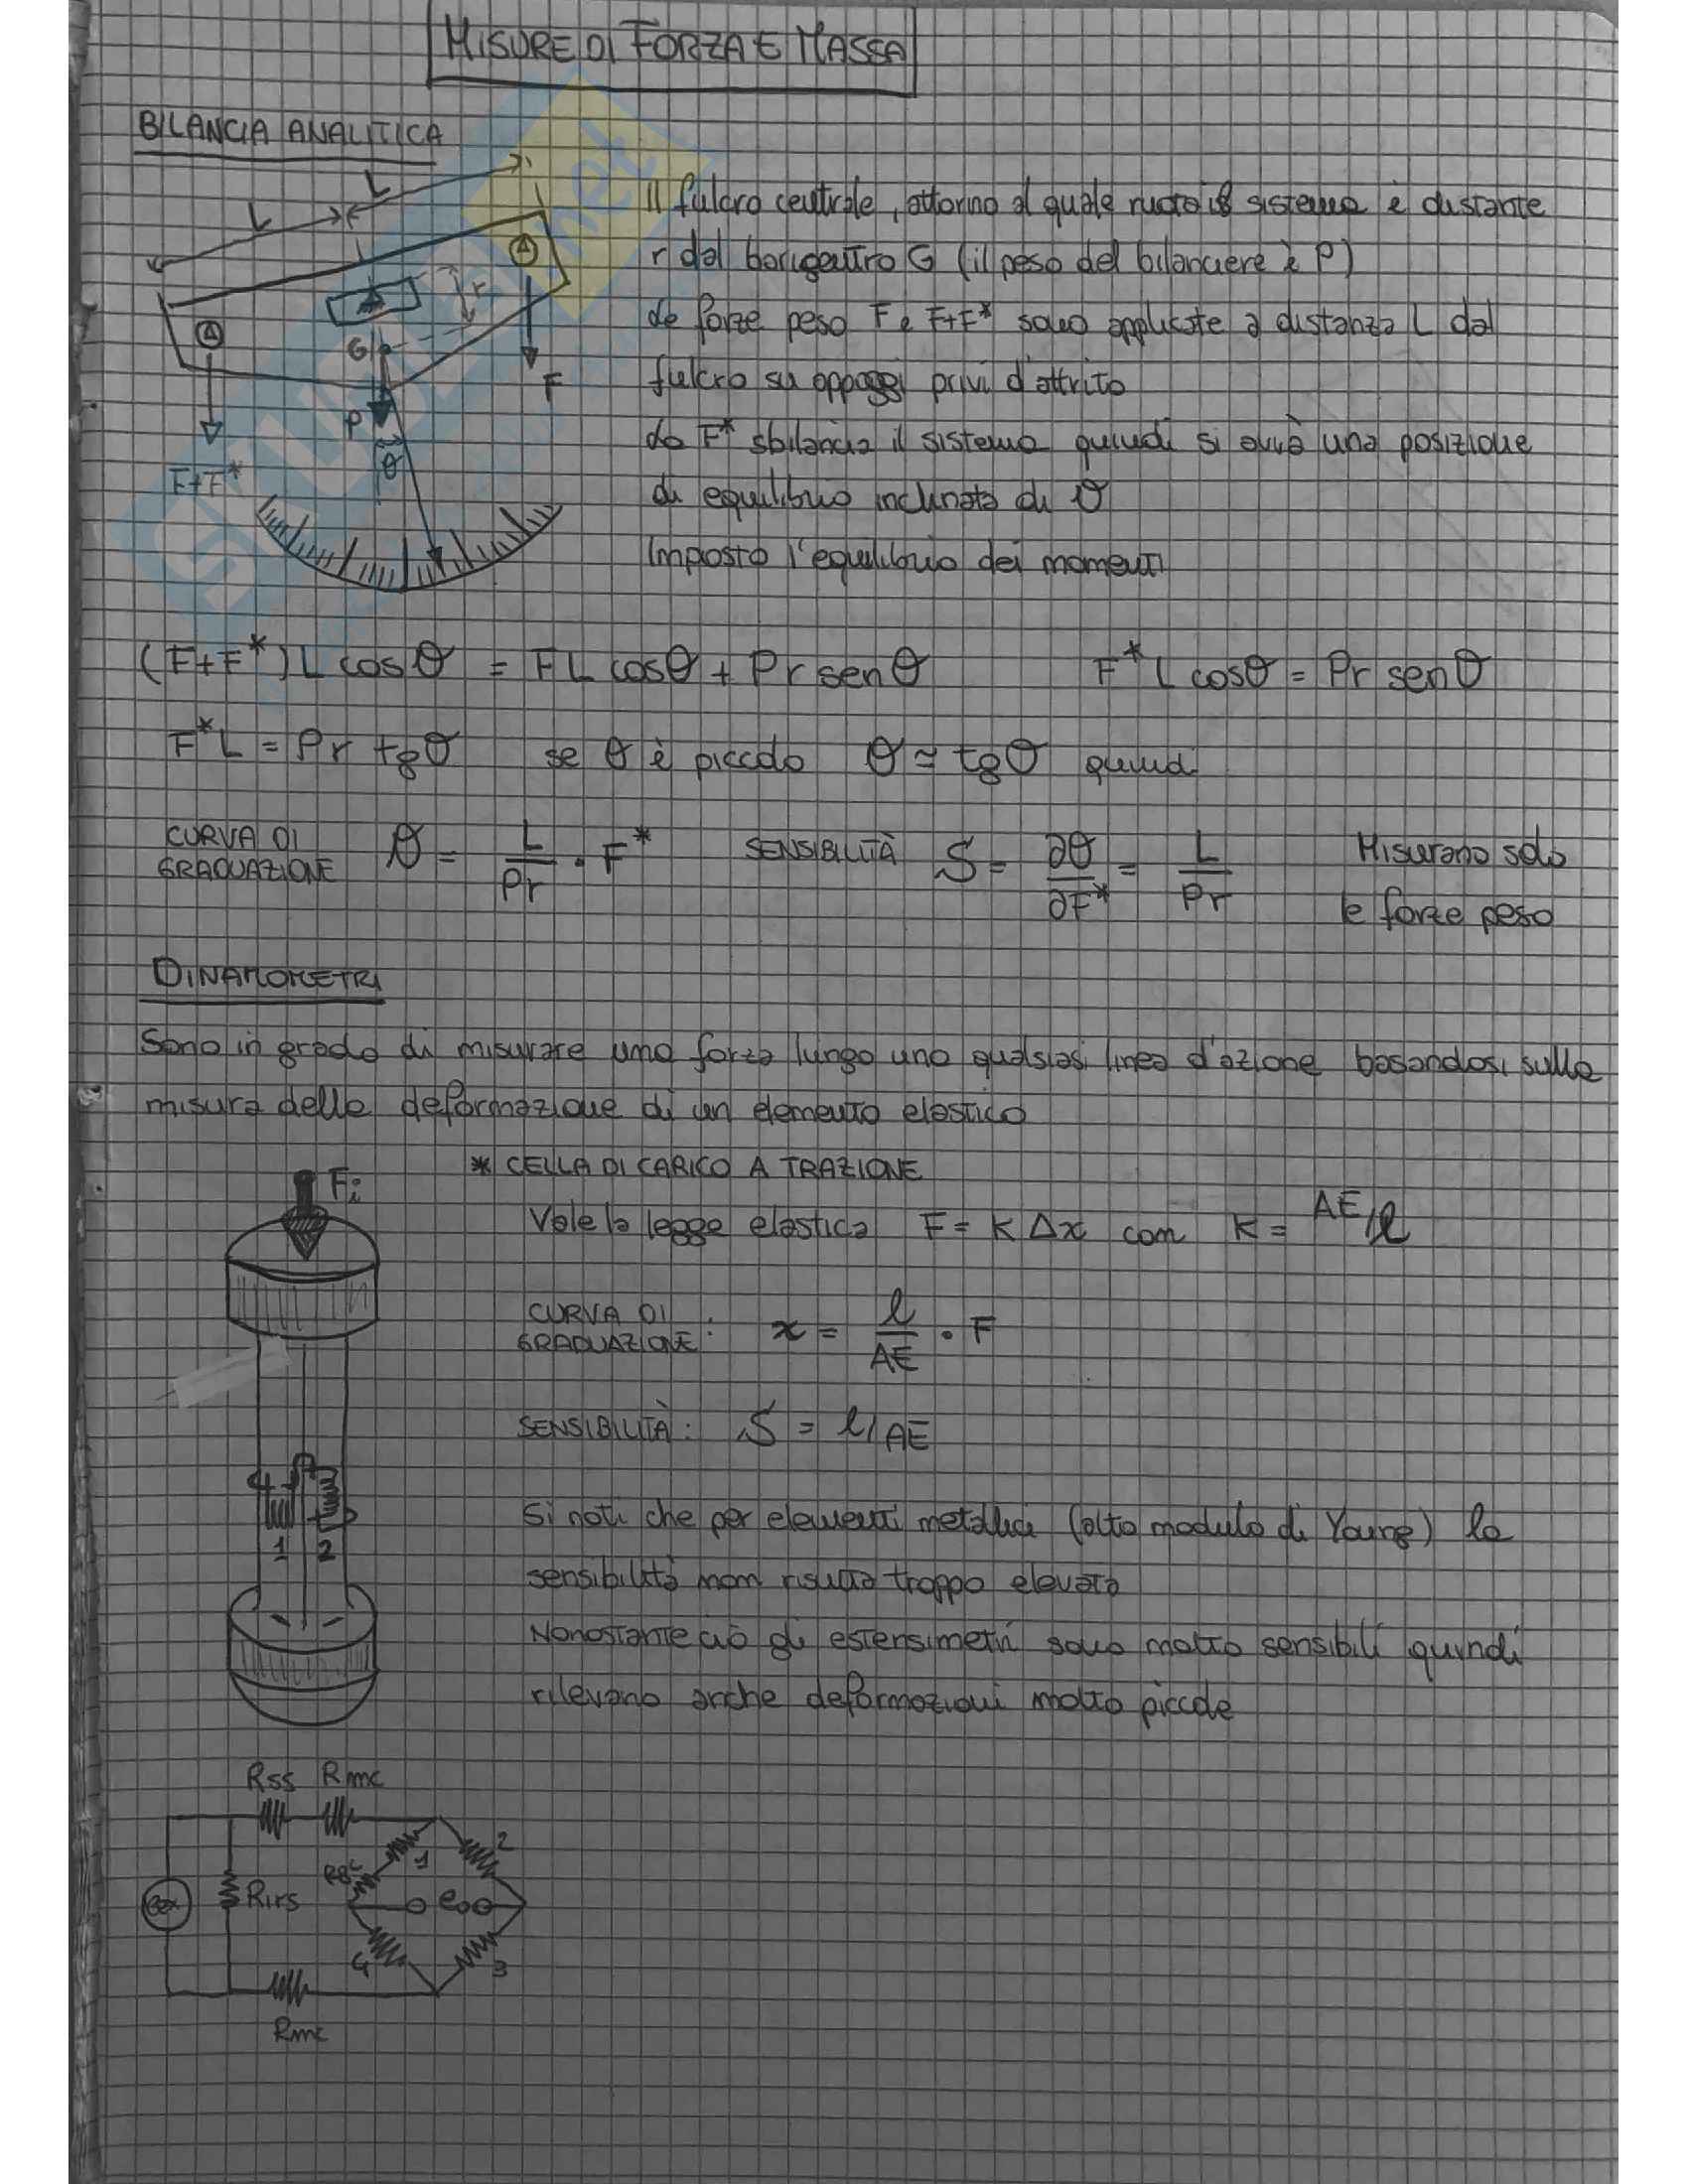 MISURE DI FORZA E MASSA
BILANCIA ANALITICA
L
L
Il fulcro centrale, attorno al quale ruota il sistema è distante
r dal baricentro G (il peso del bilanciere è P)
Le forze peso F e F+F* sono applicate a distanza L dal
fulcro su appoggi privi d'attrito
La F* sbilancia il sistema quindi si avrà una posizione
di equilibrio inclinata di θ
Imposto l'equilibrio dei momenti
r
G
F
P
θ
F+F*
(F+F*) L cosθ = FL cosθ + Pr senθ F* L cosθ = Pr senθ
F*L = Pr tgθ se θ è piccolo θ ≃ tgθ quindi
CURVA DI GRADUAZIONE θ = L/Pr · F* SENSIBILITÀ S = ∂θ/∂F* = L/Pr Misurano solo
le forze peso
DINAMOMETRI
Sono in grado di misurare una forza lungo una qualsiasi linea d'azione basandosi sulla
misura della deformazione di un elemento elastico
* CELLA DI CARICO A TRAZIONE
Fi
Vale la legge elastica F = K Δx con K = AE/l
CURVA DI GRADUAZIONE: x = l/AE · F
SENSIBILITÀ: S = l/AE
4
1 2
Si noti che per elementi metallici (alto modulo di Young) la
sensibilità non risulta troppo elevata
Nonostante ciò gli estensimetri sono molto sensibili quindi
rilevano anche deformazioni molto piccole
Rss Rmc
1
2
Rirs
eo
4
3
Rmc